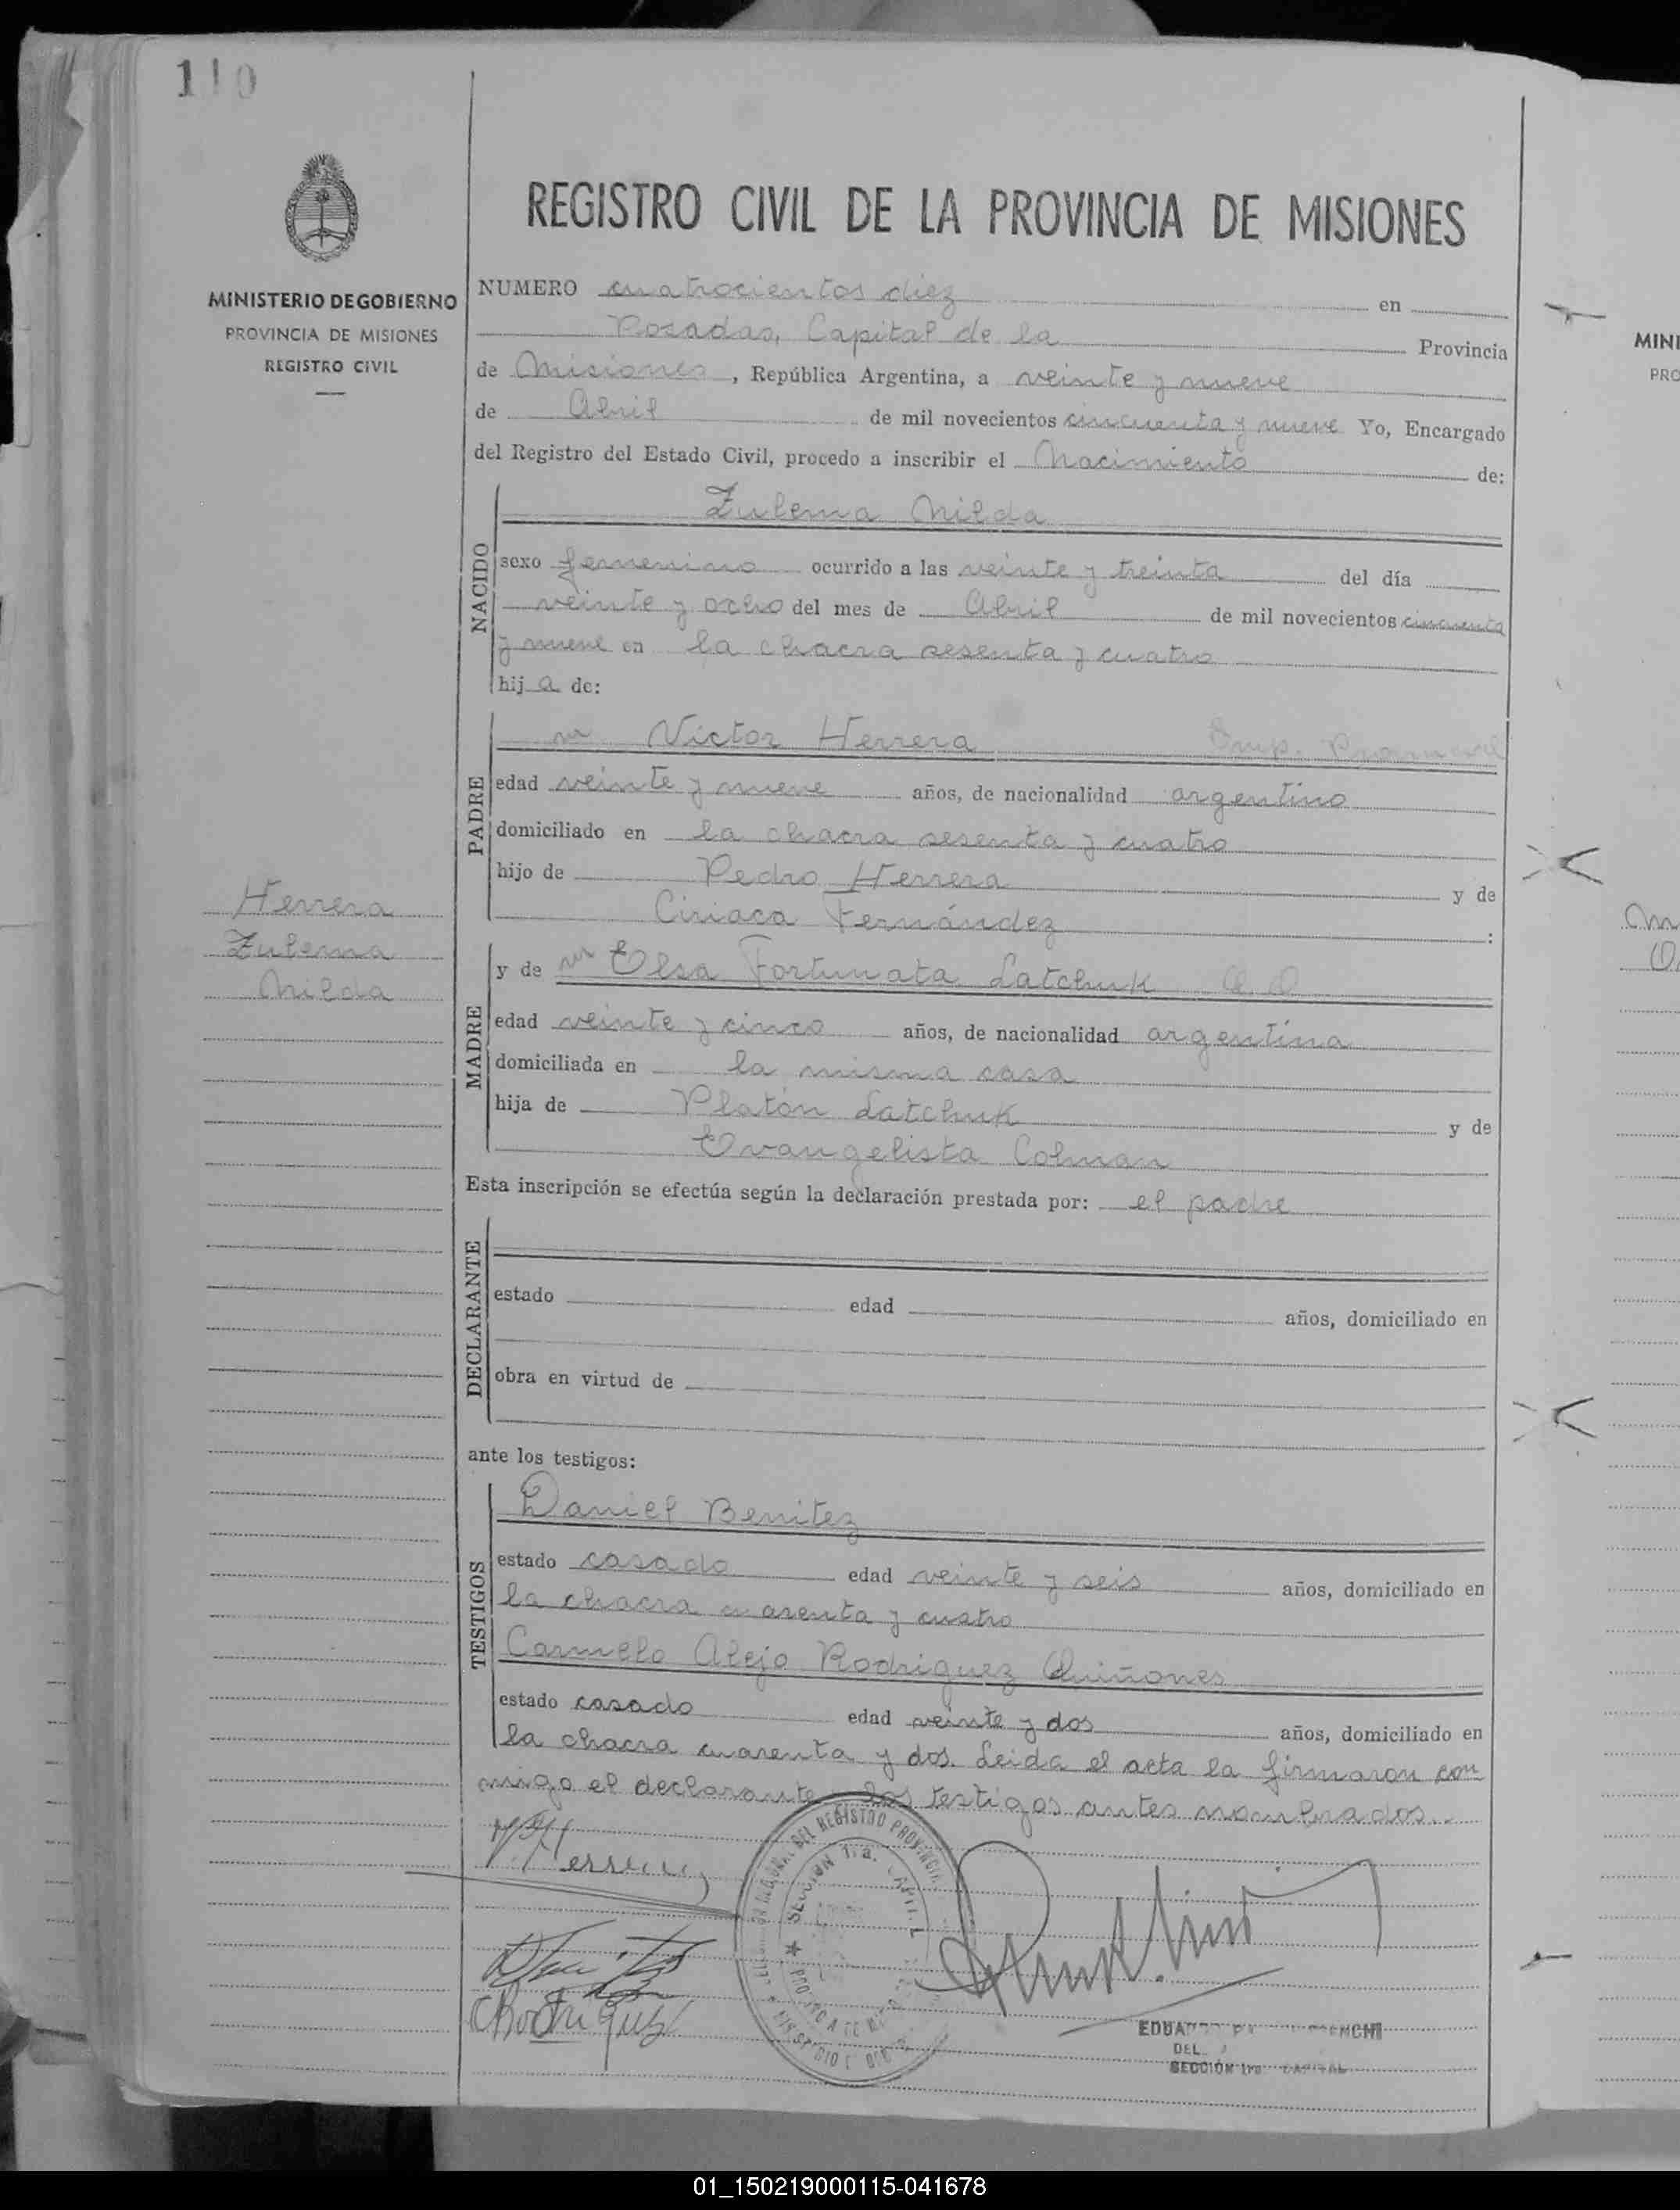 110
MINISTERIO DE GOBIERNO
PROVINCIA DE MISIONES
REGISTRO CIVIL
REGISTRO CIVIL DE LA PROVINCIA DE MISIONES
NUMERO cuatrocientos diez en
Posadas, Capital de la Provincia
de Misiones, República Argentina, a veinte y nueve
de Abril de mil novecientos cincuenta y nueve Yo, Encargado
del Registro del Estado Civil, procedo a inscribir el Nacimiento de:
NACIDO
Zulema Nilda
sexo femenino ocurrido a las veinte y treinta del día
veinte y ocho del mes de Abril de mil novecientos cincuenta
y nueve en la chacra sesenta y cuatro
hija de:
PADRE
Victor Herrera
edad veinte y nueve años, de nacionalidad argentino
domiciliado en la chacra sesenta y cuatro
hijo de Pedro Herrera y de
Ciriaca Fernández :
Herrera
Zulema
Nilda
MADRE
y de Elsa Fortunata Latchuk
edad veinte y cinco años, de nacionalidad argentina
domiciliada en la misma casa
hija de Platón Latchuk y de
Evangelista Colman
Esta inscripción se efectúa según la declaración prestada por: el padre
DECLARANTE
estado edad años, domiciliado en
obra en virtud de
ante los testigos:
TESTIGOS
Daniel Benitez
estado casado edad veinte y seis años, domiciliado en
la chacra cuarenta y cuatro
Carmelo Alejo Rodriguez Quiñones
estado casado edad veinte y dos años, domiciliado en
la chacra cuarenta y dos. Leida el acta la firmaron con
migo el declarante y los testigos antes nombrados..
V. Herrera
DEL REGISTRO PROVINCIAL
SECCION 1a.
CRodriguez
DEL
SECCIÓN 1ra. CAPITAL
MINI
PRO
01_150219000115-041678